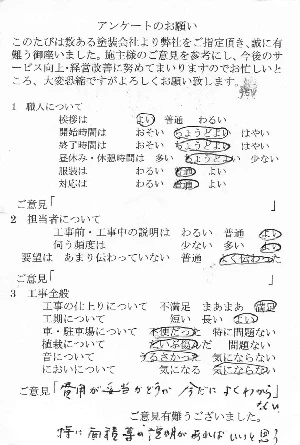 アンケートのお願い
このたびは数ある塗装会社より弊社をご指定頂き、誠に有
難う御座いました。施主様のご意見を参考にし、今後のサ
ービス向上・経営改善に努めてまいりますのでお忙しいとこ
ろ、大変恐縮ですがよろしくお願い致します。
1 職人について
挨拶は よい 普通 わるい
開始時間は おそい ちょうどよい はやい
終了時間は おそい ちょうどよい はやい
昼休み・休憩時間は 多い ちょうどよい 少ない
服装は よい 普通 わるい
対応は よい 普通 わるい
ご意見「 」
2 担当者について
工事前・工事中の説明は わるい 普通 よい
伺う頻度は 少ない 多い よい
要望は あまり伝わっていない 普通 よく伝わった
ご意見「 」
3 工事全般
工事の仕上りについて 不満足 まあまあ 満足
工期について 短い 長い よい
車・駐車場について 不便だった 特に問題ない
植栽について だいぶ傷んだ 問題ない
音について うるさかった 気にならない
においについて 気になる 気にならない
ご意見「費用が妥当かどうか今だによくわから」
ない
ご意見有難うございました。
特に面積等の説明があればいいと思う